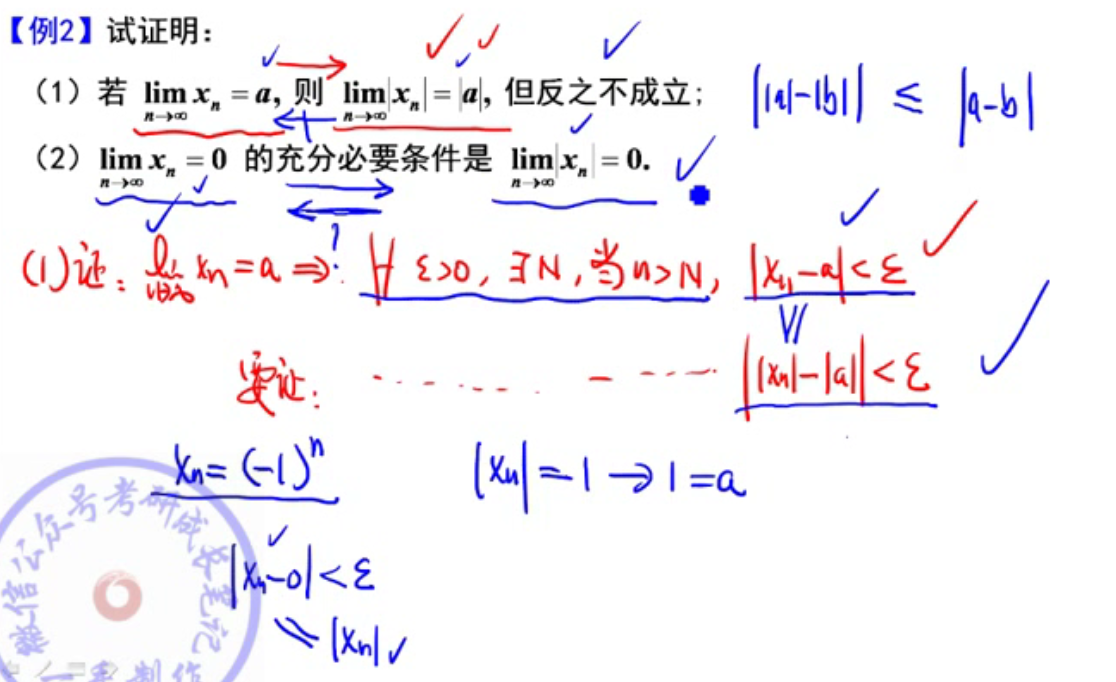 【例2】试证明:
(1) 若 lim n→∞ xₙ = a, 则 lim n→∞ |xₙ| = |a|, 但反之不成立; ||a|-|b|| ≤ |a-b|
(2) lim n→∞ xₙ = 0 的充分必要条件是 lim n→∞ |xₙ| = 0.
(1)证: lim n→∞ xₙ = a ⇒ ? ∀ ε>0, ∃N, 当n>N, |xₙ-a|<ε
要证: ||xₙ|-|a||<ε
xₙ=(-1)ⁿ |xₙ|=1→1=a
|xₙ-0|<ε
=|xₙ|
微信公众号考研成
笔记
制作